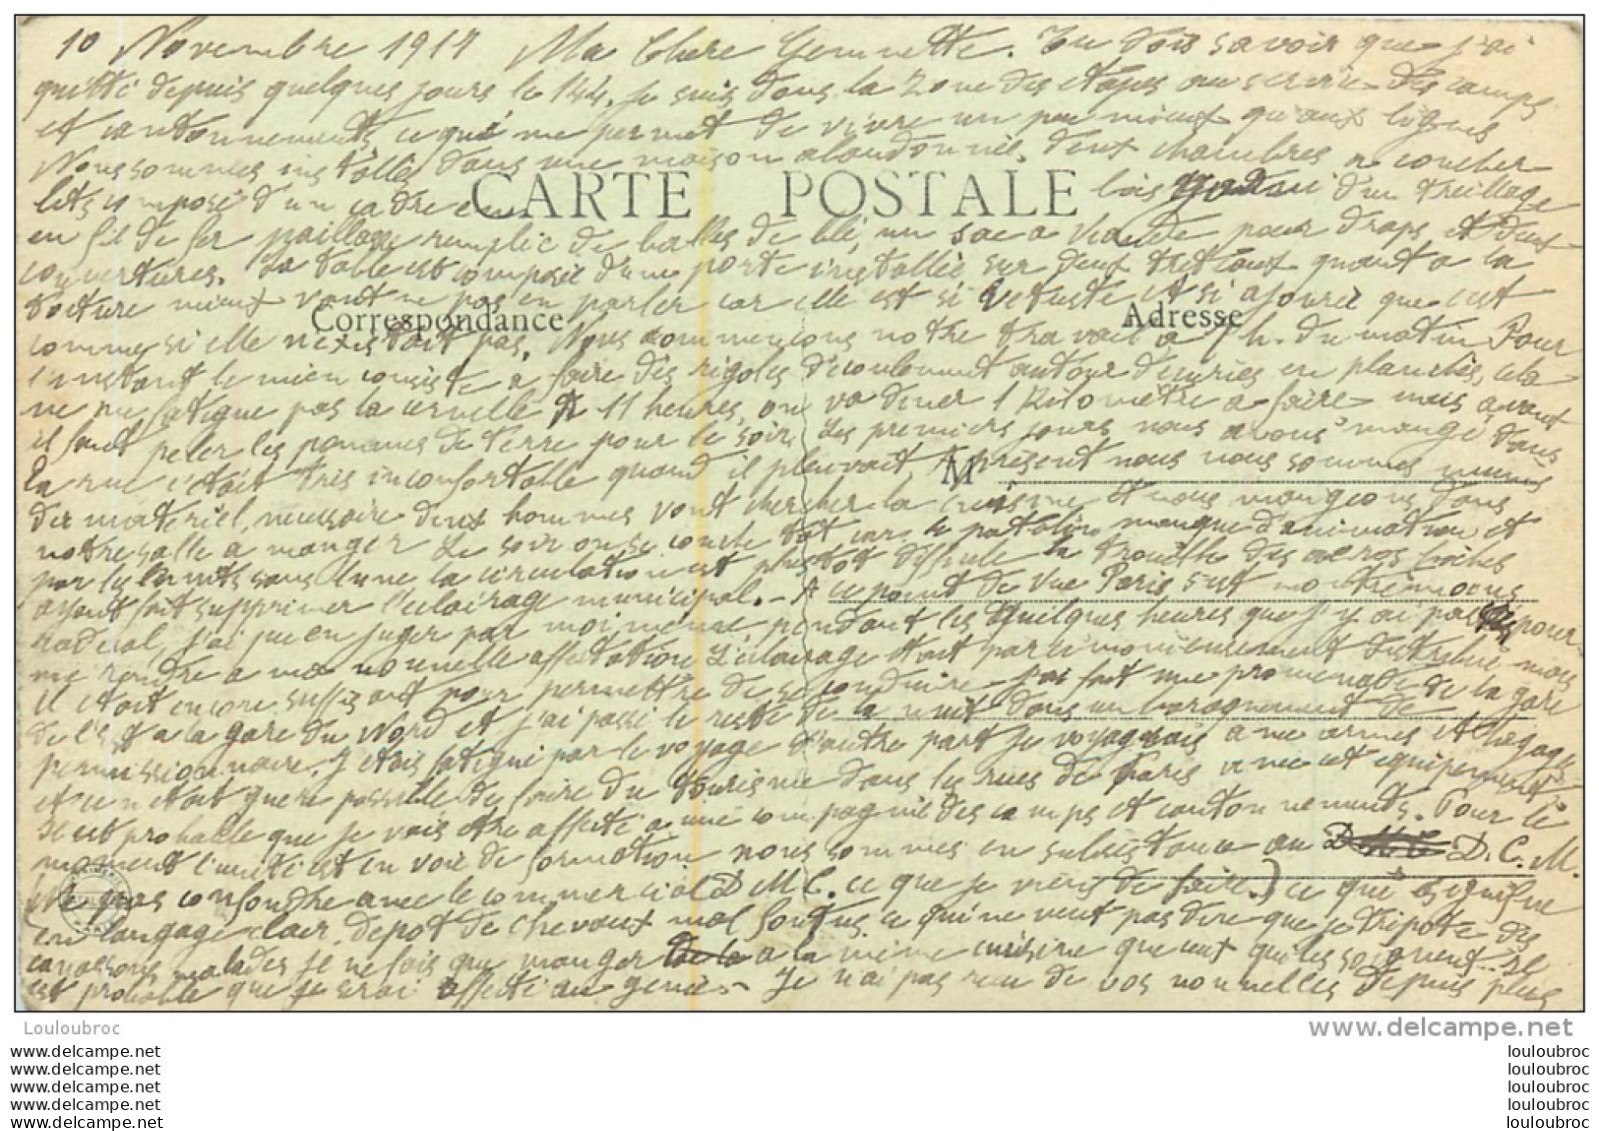 10 Novembre 1917 Ma Chere Germinette. Tu dois savoir que j'ai
quitté depuis quelques jours le 144, je suis dans la zone des étapes au service des camps
et cantonnements, ce qui me permet de vivre un peu mieux qu'aux lignes
Nous sommes installés dans une maison abandonnée, deux chambres a coucher
CARTE POSTALE
lits composé d'un cadre en bois d'un treillage
en fil de fer paillasse remplie de balles de blé, un sac a viande pour draps et deux
couvertures. La table est composée d'une porte installée sur deux treteaux quant a la
toiture mieux vaut ne pas en parler car elle est si vetuste et si ajourée que c'est
Correspondance Adresse
comme si elle n'existait pas. Nous commencons notre travail a 7h. du matin Pour
l'instant le mien consiste a faire des rigoles d'écoulement autour d'écuries en planches, cela
ne me fatigue pas la cervelle A 11 heures, on va diner 1 Kilomètre a faire mais avant
il faut peler les pommes de terre pour le soir. Les premiers jours nous avons mangé dans
la rue c'était très inconfortable quand il pleuvait, A présent nous nous sommes munis
M
du materiel, necessaire deux hommes vont chercher la cuisine et nous mangeons dans
notre salle a manger Le soir on se couche tot car le patelin manque d'animation et
par les nuits sans lune la circulation est plustot difficile la trouille des aeros boches
ayant fait supprimer l'eclairage municipal. - A ce point de vue Paris s'est montré moins
radical, j'ai pu en juger par moi meme, pendant les quelques heures que j'y ai passé pour
me rendre a ma nouvelle affectation L'éclairage était parcimonieusement distribué mais
il etait encore suffisant pour permettre de se conduire - j'ai fait une promenade de la gare
de l'Est a la gare du Nord et j'ai passé le reste de la nuit dans un baraquement de
permissionnaire. J'etais fatigué par le voyage d'autre part je voyageais avec armes et bagages
et ce n'etait guere possible de faire du tourisme dans les rues de Paris avec cet equipement
Il est probable que je vais etre affecté a une compagnie des camps et cantonnements. Pour le
moment l'unité est en voie de formation nous sommes en subsistance au D.C.M.
(Ne pas confondre avec le commercial D M C. ce que je viens de faire.) ce qui signifie
en langage clair, depot de chevaux mal foutus, ce qui ne veut pas dire que je tripote des
canassons malades je ne fais que manger a la même cuisine que ceux qui les soignent. Il
est probable que je serai affecté au genie. - Je n'ai pas reçu de vos nouvelles depuis plus
Louloubroc www.delcampe.net
www.delcampe.net louloubroc
www.delcampe.net louloubroc
www.delcampe.net louloubroc
www.delcampe.net louloubroc
www.delcampe.net louloubroc